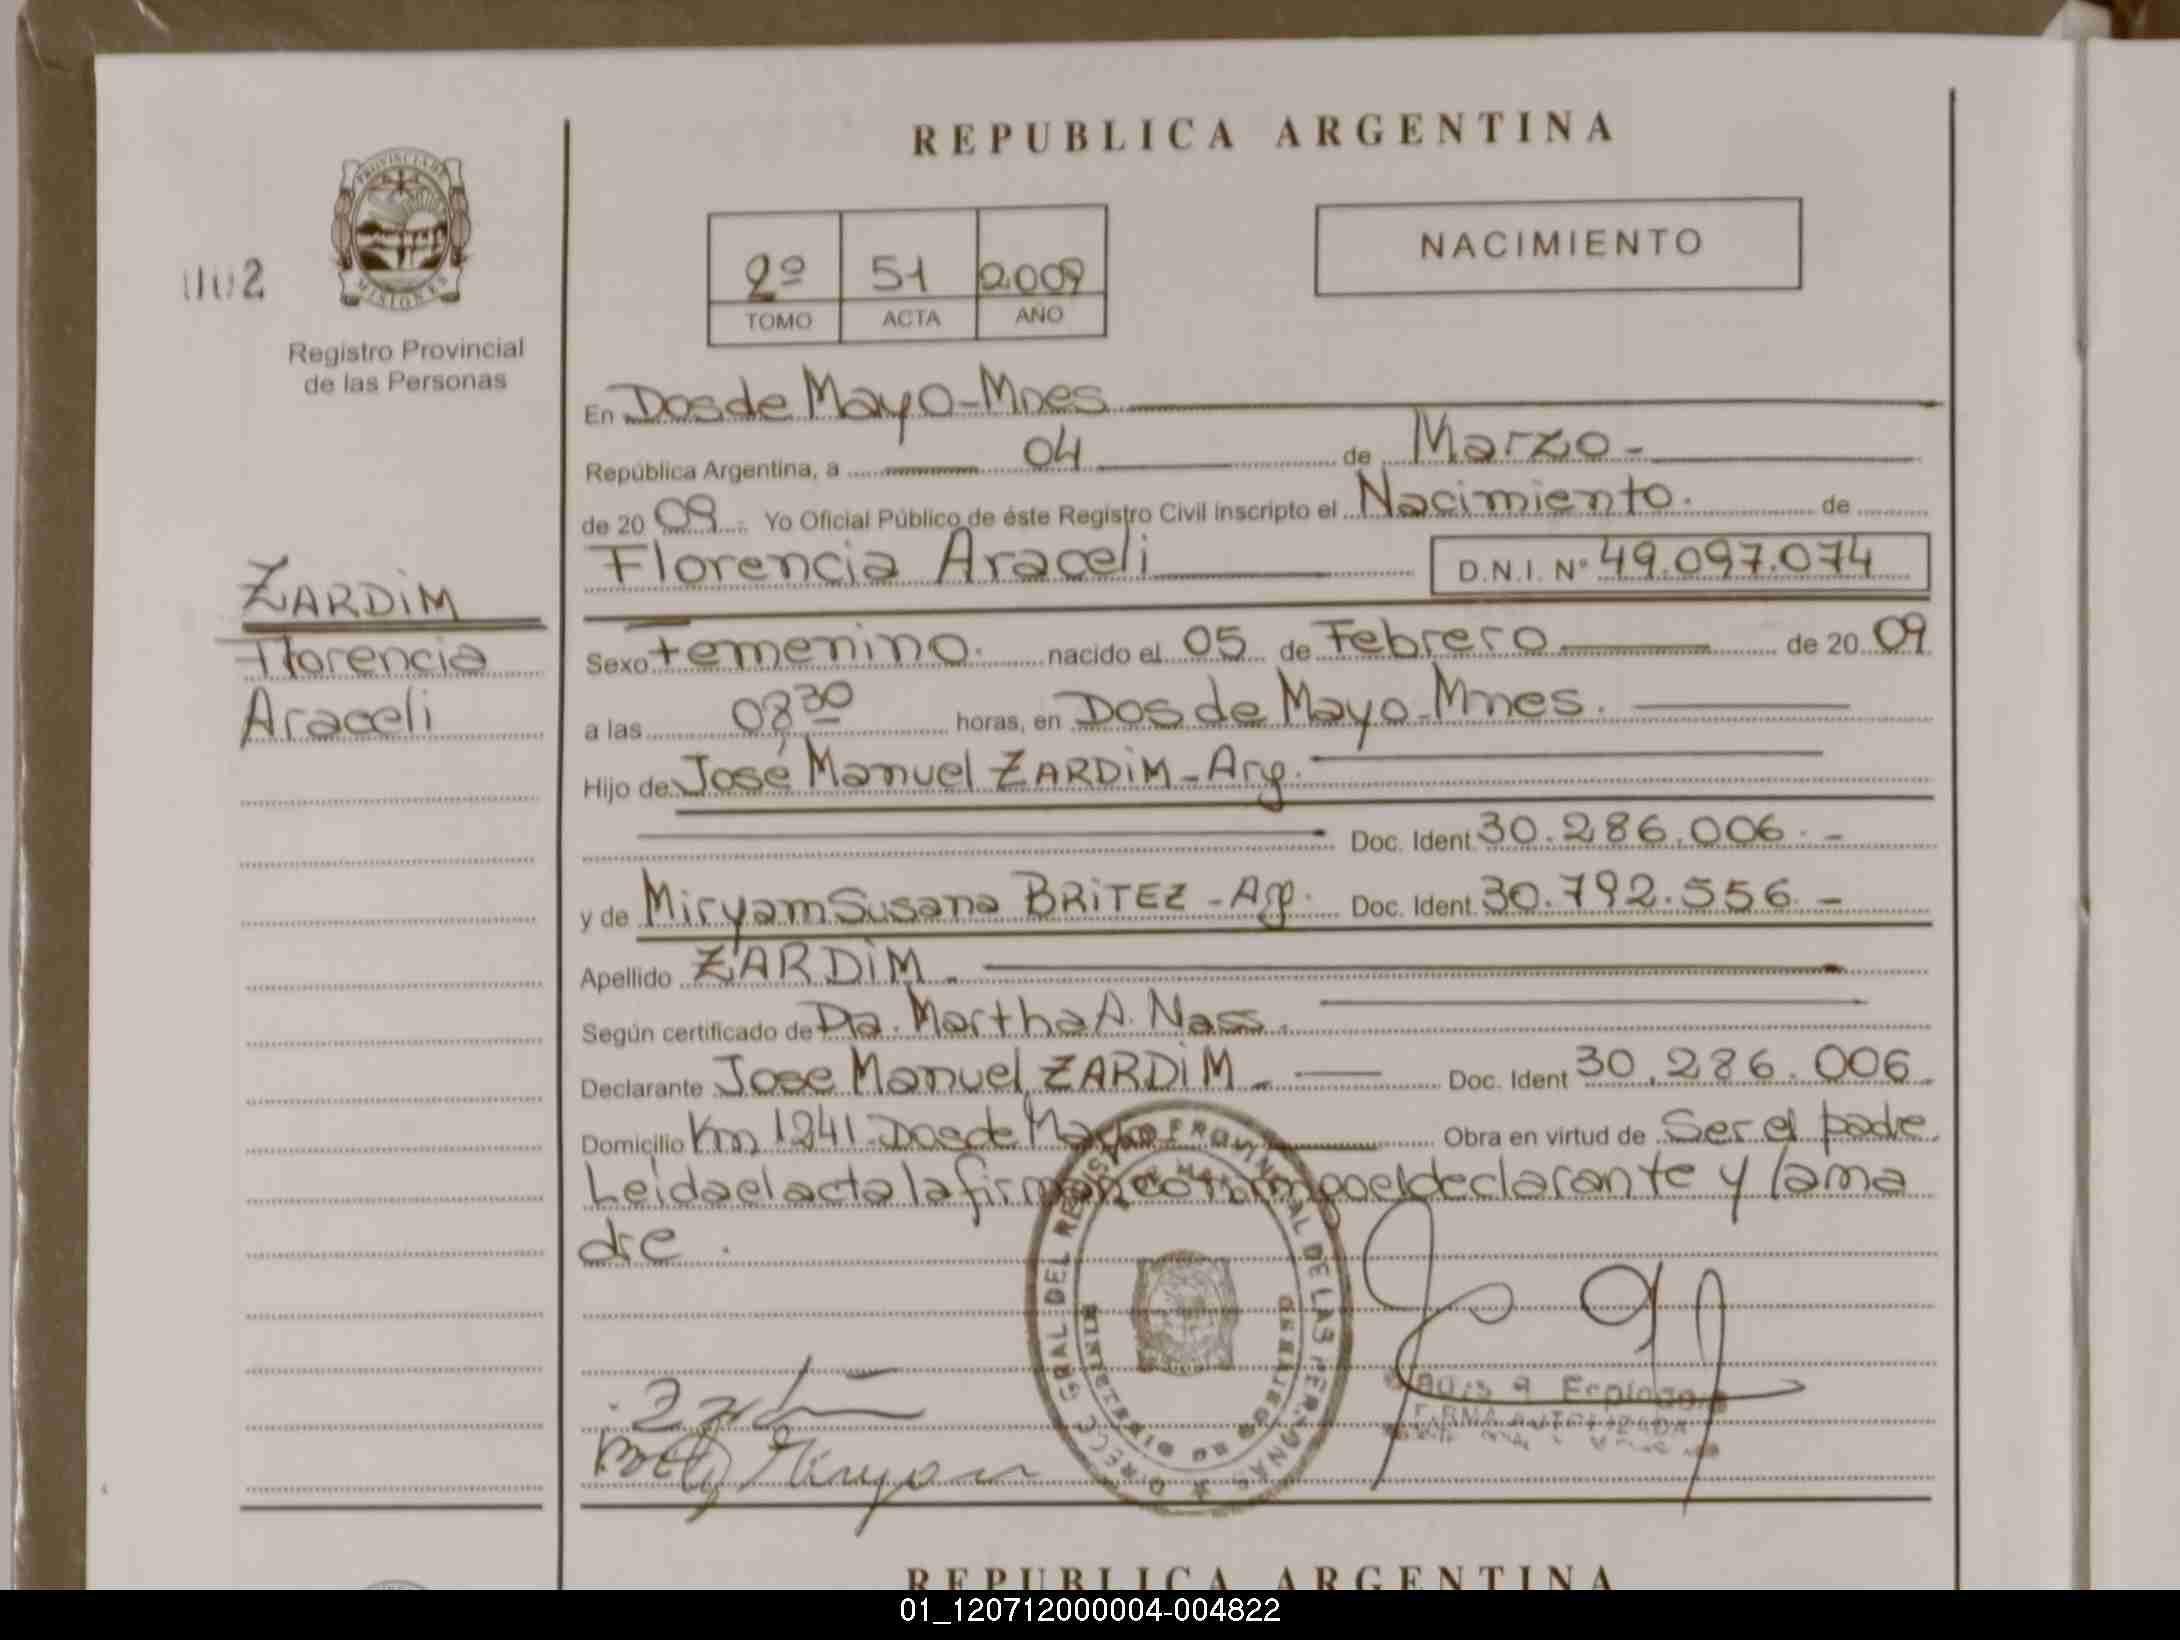 REPUBLICA ARGENTINA
PROVINCIA DE
MISIONES
2º 51 2009
TOMO ACTA AÑO
NACIMIENTO
Registro Provincial
de las Personas
En Dos de Mayo - Mnes
República Argentina, a 04 de Marzo -
de 20 09 Yo Oficial Público de éste Registro Civil inscripto el Nacimiento. de
Florencia Araceli D.N.I. Nº 49.097.074
ZARDIM
Florencia
Araceli
Sexo Femenino. nacido el 05 de Febrero de 20 09
a las 08 30 horas, en Dos de Mayo - Mnes.
Hijo de José Manuel ZARDIM - Arg.
Doc. Ident. 30.286.006. -
y de Miryam Susana BRITEZ - Arg. Doc. Ident. 30.792.556. -
Apellido ZARDIM -
Según certificado de Dra. Martha A. Nass.
Declarante Jose Manuel ZARDIM - Doc. Ident 30.286.006
Domicilio Km 1241. Dos de Mayo Obra en virtud de Ser el padre
Leida el acta la firman conmigo el declarante y la ma
dre.
DIRECC. GRAL DEL REGISTRO PROVINCIAL DE LAS PERSONAS
FIRMA AUTORIZADA
REPUBLICA ARGENTINA
01_120712000004-004822